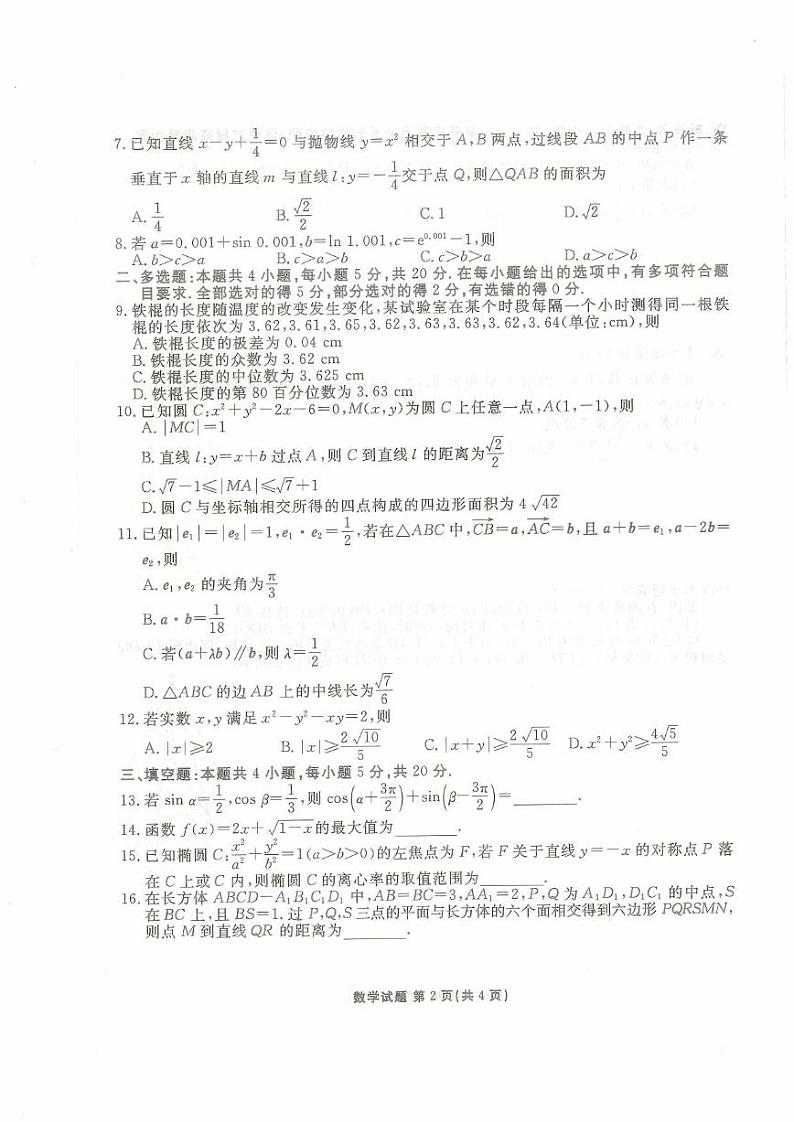 7. 已知直线 x-y+1/4=0 与抛物线 y=x² 相交于 A,B 两点,过线段 AB 的中点 P 作一条
垂直于 x 轴的直线 m 与直线 l:y=-1/4交于点 Q,则△QAB 的面积为
A. 1/4 B. √2/2 C. 1 D. √2
8. 若 a=0.001+sin 0.001,b=ln 1.001,c=e^0.001-1,则
A. b>c>a B. c>a>b C. c>b>a D. a>c>b
二、多选题:本题共 4 小题,每小题 5 分,共 20 分. 在每小题给出的选项中,有多项符合题
目要求. 全部选对的得 5 分,部分选对的得 2 分,有选错的得 0 分.
9. 铁棍的长度随温度的改变发生变化,某试验室在某个时段每隔一个小时测得同一根铁
棍的长度依次为 3.62,3.61,3.65,3.62,3.63,3.63,3.62,3.64(单位:cm),则
A. 铁棍长度的极差为 0.04 cm
B. 铁棍长度的众数为 3.62 cm
C. 铁棍长度的中位数为 3.625 cm
D. 铁棍长度的第 80 百分位数为 3.63 cm
10. 已知圆 C:x²+y²-2x-6=0,M(x,y)为圆 C 上任意一点,A(1,-1),则
A. |MC|=1
B. 直线 l:y=x+b 过点 A,则 C 到直线 l 的距离为√2/2
C. √7-1≤|MA|≤√7+1
D. 圆 C 与坐标轴相交所得的四点构成的四边形面积为 4√42
11. 已知|e₁|=|e₂|=1,e₁·e₂=1/2,若在△ABC 中,CB→=a,AC→=b,且 a+b=e₁,a-2b=
e₂,则
A. e₁,e₂ 的夹角为π/3
B. a·b=1/18
C. 若(a+λb)∥b,则 λ=1/2
D. △ABC 的边 AB 上的中线长为√7/6
12. 若实数 x,y 满足 x²-y²-xy=2,则
A. |x|≥2 B. |x|≥2√10/5 C. |x+y|≥2√10/5 D. x²+y²≥4√5/5
三、填空题:本题共 4 小题,每小题 5 分,共 20 分.
13. 若 sin α=1/2,cos β=1/3,则 cos(α+3π/2)+sin(β-3π/2)=________.
14. 函数 f(x)=2x+√1-x的最大值为________.
15. 已知椭圆 C:x²/a²+y²/b²=1(a>b>0)的左焦点为 F,若 F 关于直线 y=-x 的对称点 P 落
在 C 上或 C 内,则椭圆 C 的离心率的取值范围为________.
16. 在长方体 ABCD-A₁B₁C₁D₁ 中,AB=BC=3,AA₁=2,P,Q 为 A₁D₁,D₁C₁ 的中点,S
在 BC 上,且 BS=1. 过 P,Q,S 三点的平面与长方体的六个面相交得到六边形 PQRSMN,
则点 M 到直线 QR 的距离为________.
数学试题 第 2 页(共 4 页)